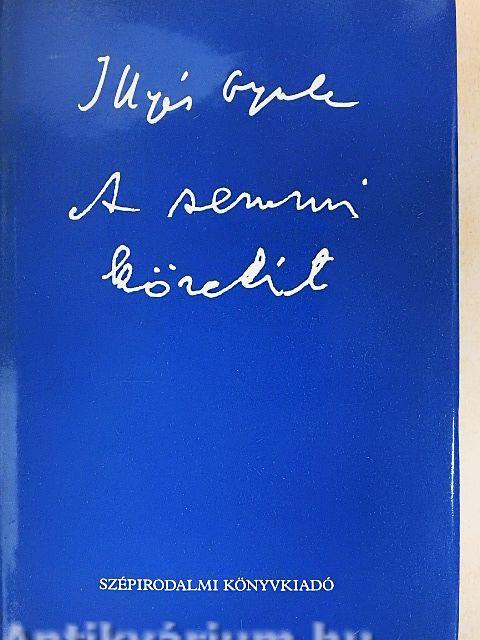 Illyés Gyula
A semmi
közelít
SZÉPIRODALMI KÖNYVKIADÓ
Antikvárium.hu